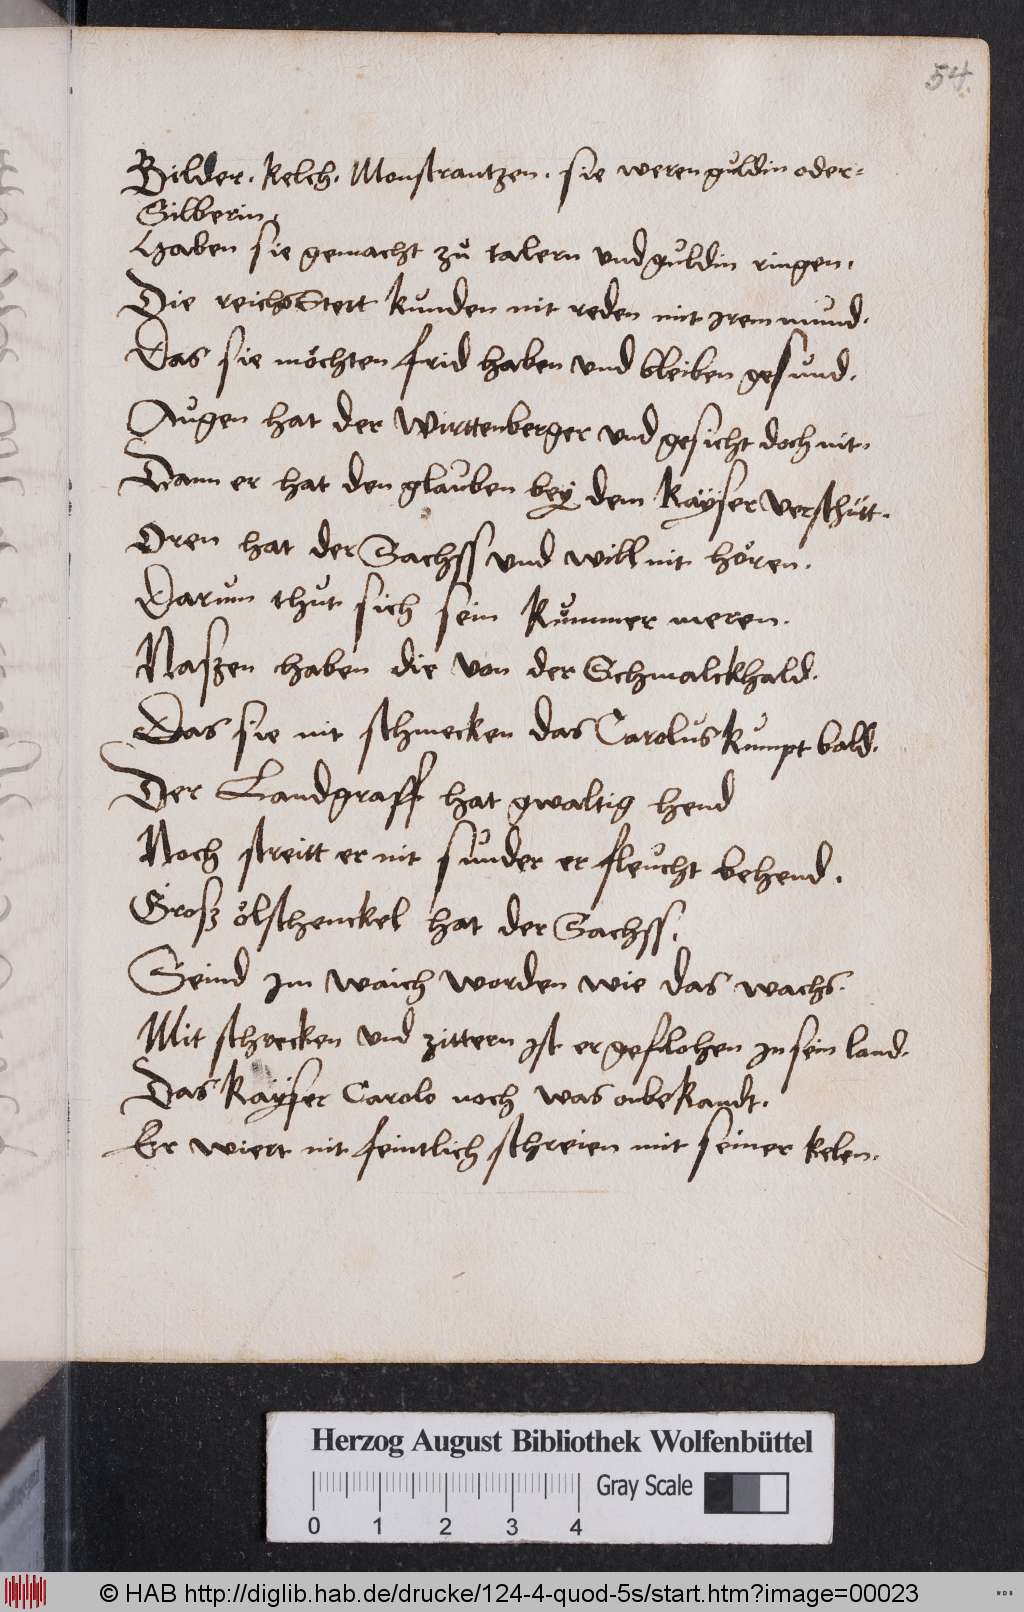 54.
Bilder. Kelch. Monstrantzen. sie weren guldin oder-
Silberin.
Haben sie gemacht zů talern vnd guldin ringen.
Die reichsStett kunden nit reden mit irem mund.
Das sie möchten frid haben vnd bleiben gesund.
Augen hat der Wirttenberger vnd gesicht doch nit.
Dann er hat den glauben bey dem Kayser verschütt.
Oren hat der Sachss vnd will nit hören.
Darum thut sich sein Kummer meren.
Naszen haben die von der Schmalckhald.
Das sie nit schmecken das Carolus kumpt bald.
Der Landgraff hat gwaltig hend
Noch streitt er nit sunder er fleucht behend.
Grosz ölschenckel hat der Sachss.
Seind im waich worden wie das wachs.
Mit schrecken vnd zittern ist er geflohen in sein land.
Das Kayser Carolo noch was onbekandt.
Er wiert nit feintlich schreien mit seiner kelen.
Herzog August Bibliothek Wolfenbüttel
Gray Scale
0 1 2 3 4
© HAB http://diglib.hab.de/drucke/124-4-quod-5s/start.htm?image=00023